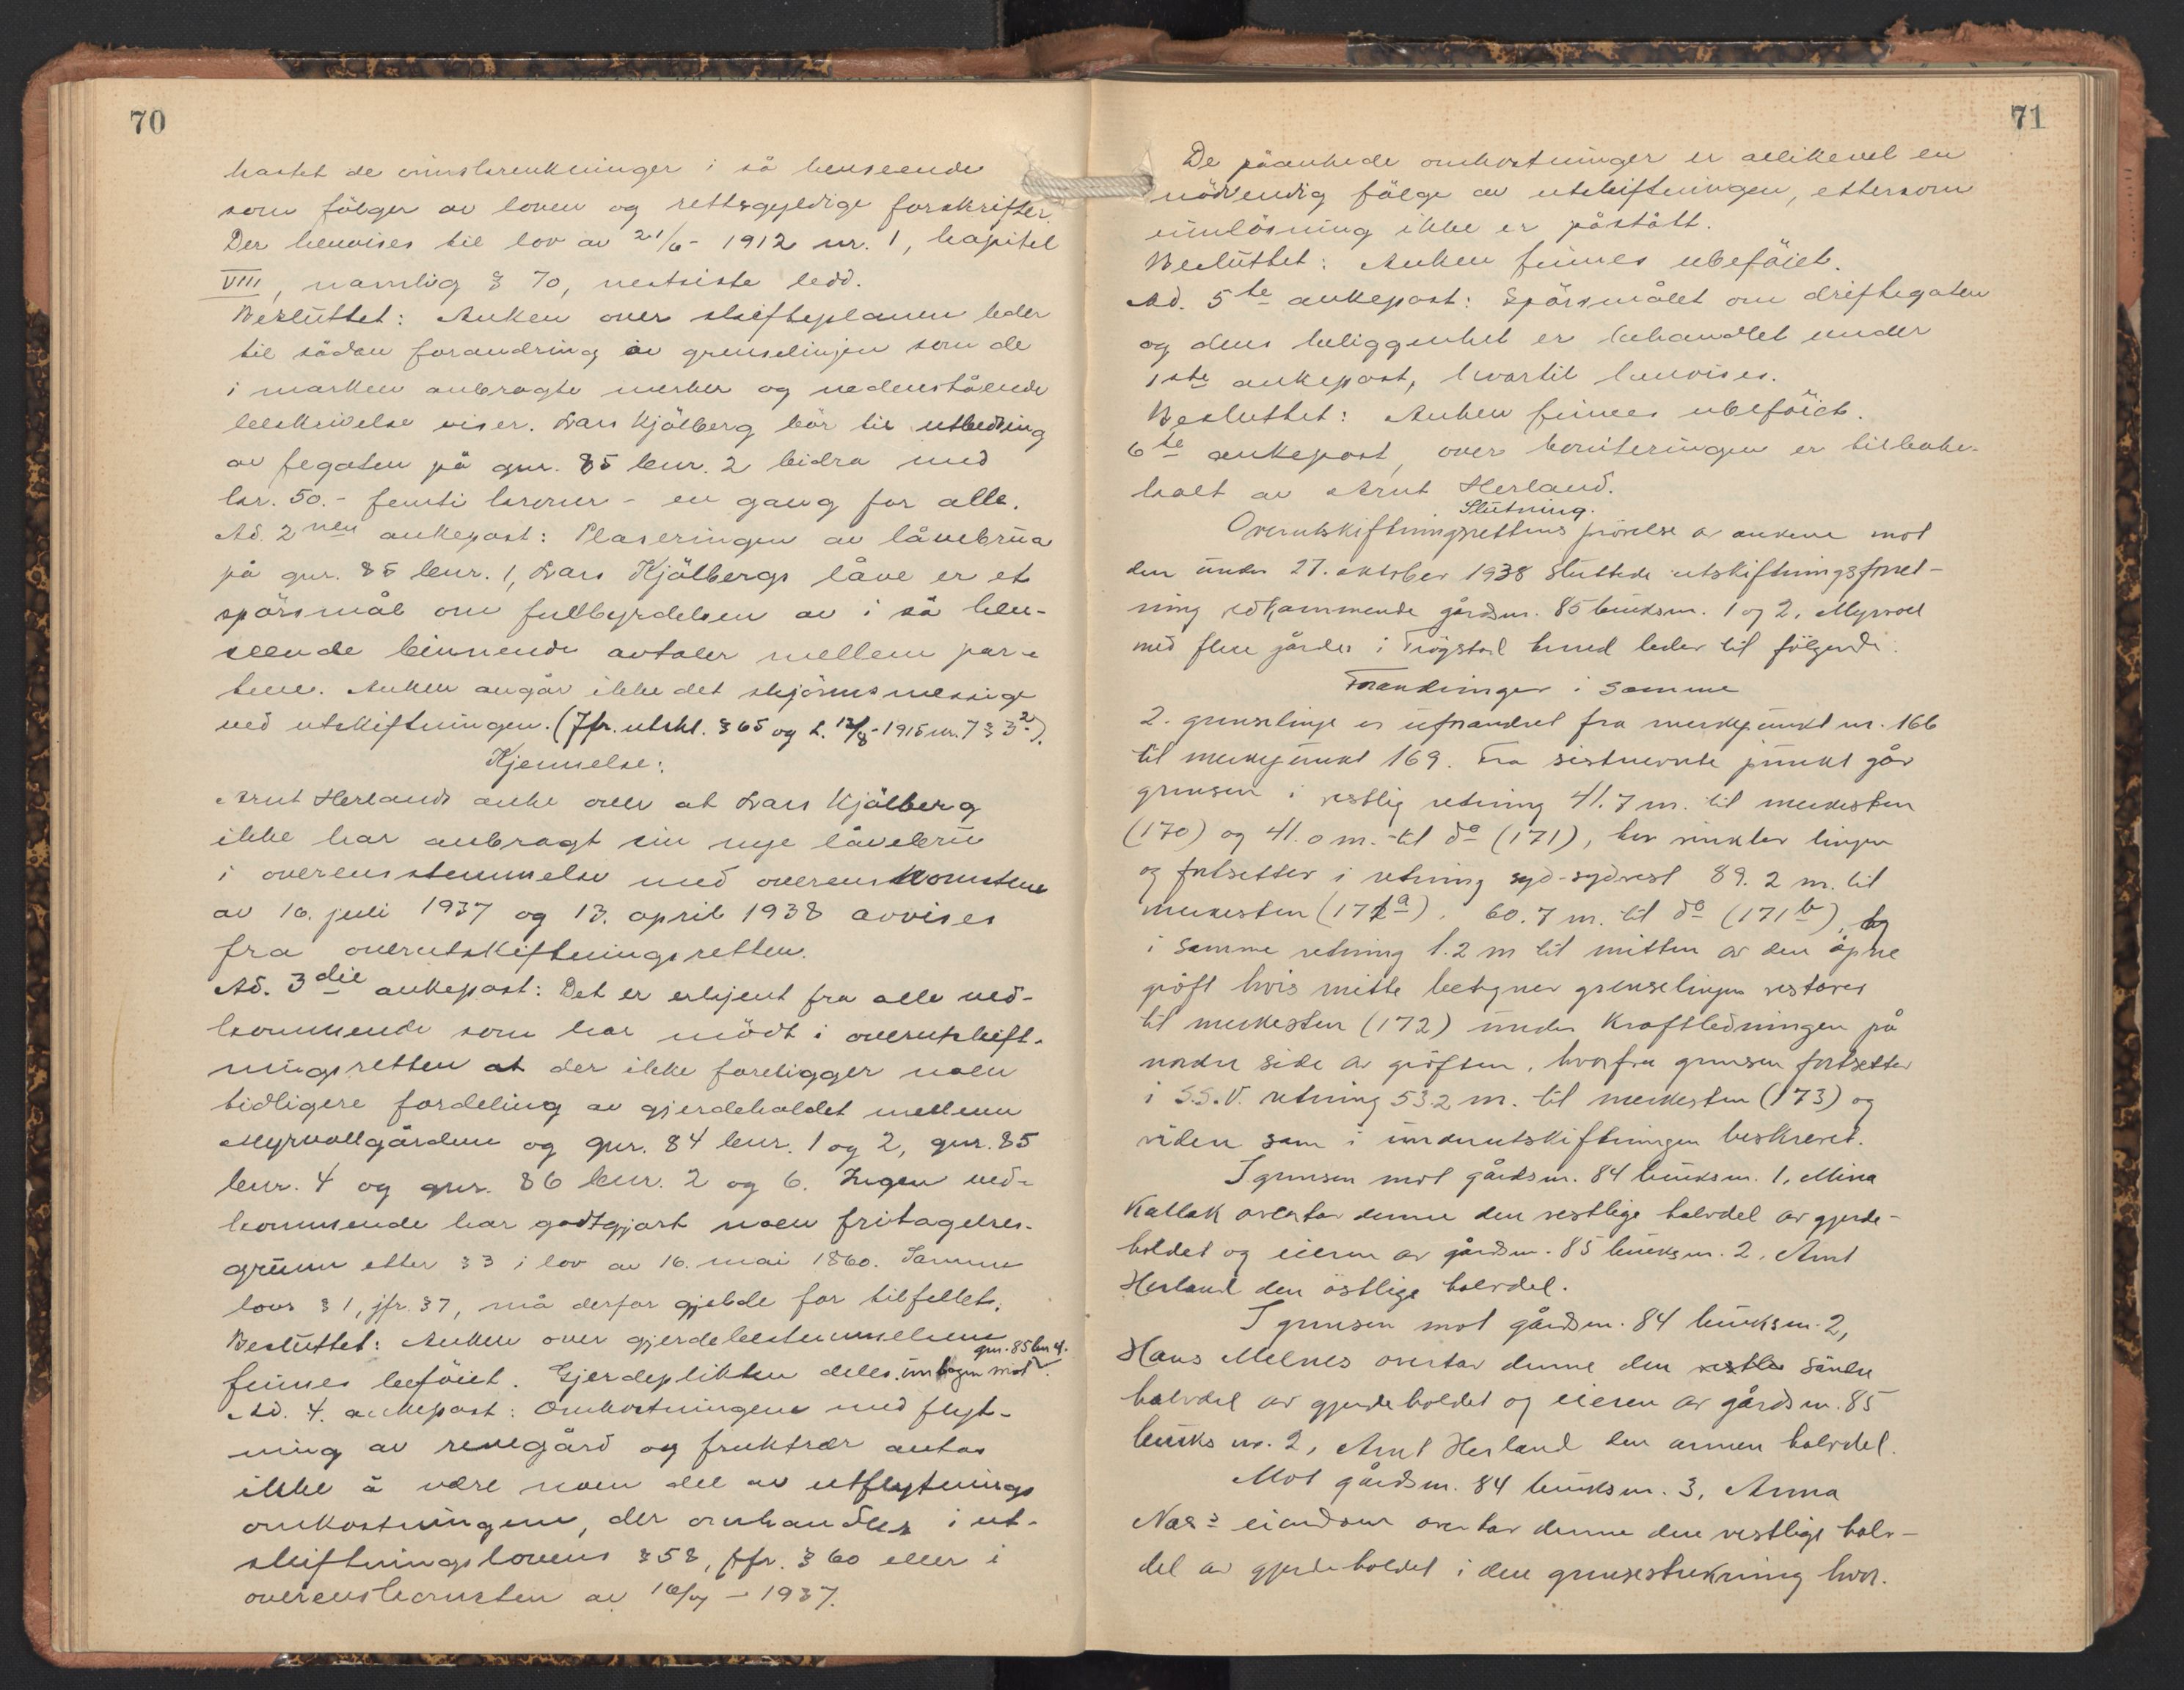 70
hastet de innskrenkninger i så henseende
som følger av loven og rettsgyldige forskrifter.
Der henvises til lov av 21/6- 1912 nr. 1, kapitel
VIII, namlig § 70, nestsiste ledd.
Besluttet: Anken over skifteplanen leder
til sådan forandring av grenselinjen som de
i marken anbragte merker og nedenstående
beskrivelse viser. Lars Kjölberg bör til utbedring
av fegaten på gnr. 85 bnr. 2 bidra med
kr. 50.- femti kroner - en gang for alle.
Ad. 2nen ankepost: Plaseringen av låvebrua
på gnr. 85 bnr. 1, Lars Kjölbergs låve er et
spörsmål om fullbyrdelsen av i så hen-
seende binnende avtaler mellem par-
tene. Anken angår ikke det skjönnsmessige
ved utskiftningen. (Jfr. utskl. § 65 og L. 13/8-1915 nr. 7 § 3²).
Kjennelse:
Arnt Herlands anke over at Lars Kjölberg
ikke har anbragt sin nye låvebru
i overensstemmelse med overenskomstene
av 16. juli 1937 og 13. april 1938 avvises
fra overutskiftningsretten.
Ad. 3die ankepost: Det er erkjent fra alle ved-
kommende som har mödt i overutskift-
ningsretten at der ikke foreligger noen
tidligere fordeling av gjerdeholdet mellem
Myrvollgårdene og gnr. 84 bnr. 1 og 2, gnr. 85
bnr. 4 og gnr. 86 bnr. 2 og 6. Ingen ved-
kommende har godtgjort noen fritagelses-
grunn etter § 3 i lov av 16. mai 1860. Samme
lovs § 1, jfr. § 7, må derfor gjelde for tilfellet.
Besluttet: Anken over gjerdebestemmelsene
gnr. 85 bnr 4.
finnes beföiet. Gjerdeplikten deles, unntagen mot
Ad. 4. ankepost: Omkostningene med flyt-
ning av revegård og frukttrær antas
ikke å være noen del av utflytnings
omkostningene, der omhandles i ut-
skiftningslovens § 58, jfr. § 60 eller i
overenskomsten av 16/7 - 1937.
71
De påankede omkostninger er allikevel en
nödvendig fölge av utskiftningen, ettersom
innlösning ikke er påstått.
Besluttet: Anken finnes ubeföiet.
Ad. 5te ankepost: Spörsmålet om driftegaten
og dens beliggenhet er behandlet under
1ste ankepost, hvortil henvises.
Besluttet: Anken finnes ubeföiet.
6te ankepost, over boniteringen er tilbake-
kalt av Arnt Herland.
Slutning.
Overutskiftningsrettens prövelse av ankene mot
den under 27. oktober 1938 sluttede utskiftningsforret-
ning vedkommende gårdsnr. 85 bruksnr. 1 og 2, Myrvoll
med flere gårder i Trögstad herred leder til fölgende
Forandringer i samme
2. grenselinje er uforandret fra merkepunkt nr. 166
til merkepunkt 169. Fra sistnevnte punkt går
grensen i vestlig retning 41.7 m. til merkesten
(170) og 41.0 m. til do (171), her vinkler linjen
og fortsetter i retning syd-sydvest 89.2 m. til
merkesten (171a), 60.7 m. til do (171b), og
i samme retning 1.2 m til midten av den åpne
gröft hvis midte betegner grenselinjen vestover
til merkesten (172) under Kraftledningen på
nordre side av gröften, hvorfra grensen fortsetter
i S.S.V. retning 53.2 m. til merkesten (173) og
viden som i underutskiftningen beskrevet.
I grensen mot gårdsnr. 84 bruksnr. 1, Mina
Kallak overtar denne den vestlige halvdel av gjerde-
holdet og eieren av gårdsnr. 85 bruksnr. 2, Arnt
Herland den östlige halvdel.
I grensen mot gårdsnr. 84 bruksnr. 2,
Hans Melnes overtar denne den vestli söndre
halvdel av gjerdeholdet og eieren av gårdsnr. 85
bruks nr. 2, Arnt Herland den annen halvdel.
Mot gårdsnr. 84 bruksnr. 3, Anna
Næs's eiendom overtar denne den vestlige halv-
del av gjerdeholdet i den grensestrekning hvor.